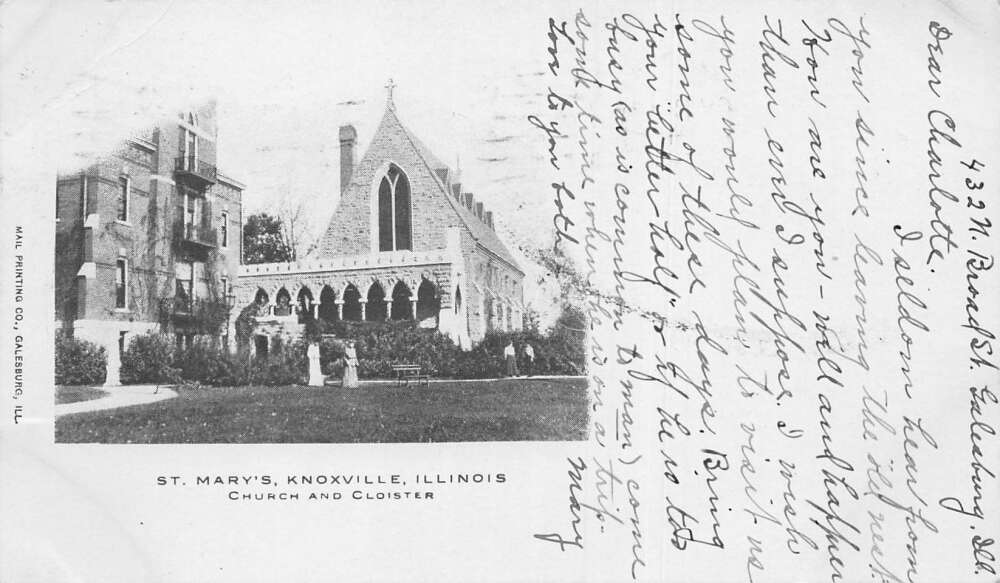 432 N. Broad St. Galesburg, Ill.
Dear Charlotte.
I seldom hear from
you since leaving the "old nest."
How are you - well and happier
than ever I suppose. I wish
you would plan to visit us
some of these days. Bring
your "better half" or if he is too
busy (as is common to man) come
some time when he is on a trip.
Love to you both
Mary
MAIL PRINTING CO., GALESBURG, ILL.
ST. MARY'S, KNOXVILLE, ILLINOIS
CHURCH AND CLOISTER